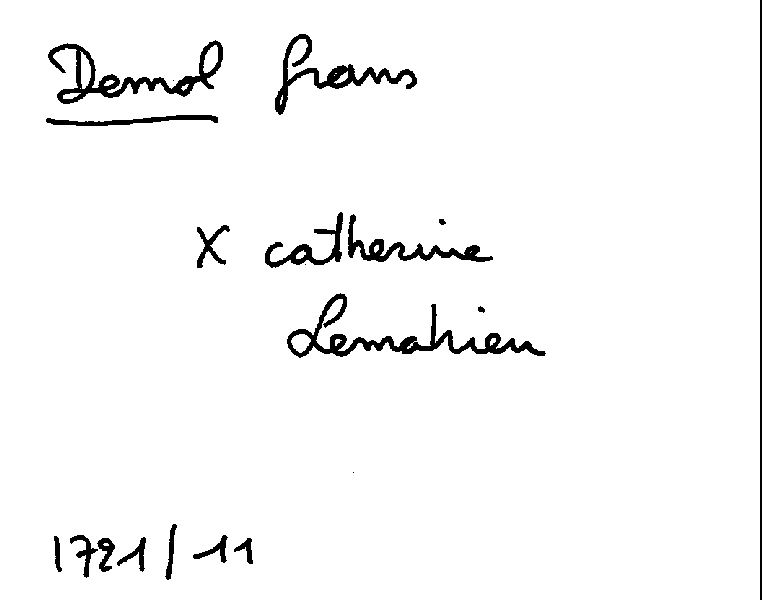 Demol frans
X catherine
Lemahieu
1721/11